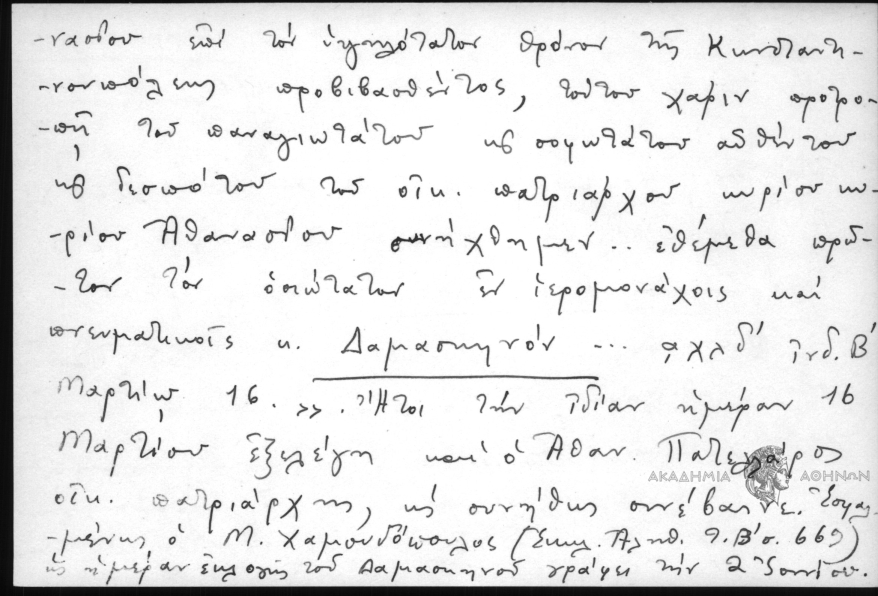 -νασίου ἐπὶ τὸν ὑψηλότατον θρόνον τῆς Κωνσταντι-
-νουπόλεως προβιβασθέντος, τούτου χάριν προτρο-
-πῇ τοῦ παναγιωτάτου κ̀ σοφωτάτου αὐθέντου
κ̀ δεσπότου τοῦ οἰκ. πατριάρχου κυρίου κυ-
-ρίου Ἀθανασίου συνήχθημεν .. ἐθέμεθα πρῶ-
-τον τὸν ὁσιώτατον ἐν ἱερομονάχοις καὶ
πνευματικοῖς κ. Δαμασκηνόν ... ͵αχλδ' ἰνδ. Β'
Μαρτίῳ 16. >>. Ἤτοι τὴν ἰδίαν ἡμέραν 16
Μαρτίου ἐξελέγη καὶ ὁ Ἀθαν. Πατελάρος
ΑΚΑΔΗΜΙΑ ΑΘΗΝΩΝ
οἰκ. πατριάρχης, ὡς συνήθως συνέβαινε. Ἐσφαλ-
-μένως ὁ Μ. Χαμουδόπουλος (Ἐκκλ. Ἀληθ. τ. Β' σ. 669)
ὡς ἡμέραν ἐκλογῆς τοῦ Δαμασκηνοῦ γράφει τὴν 2 Ἰουνίου.